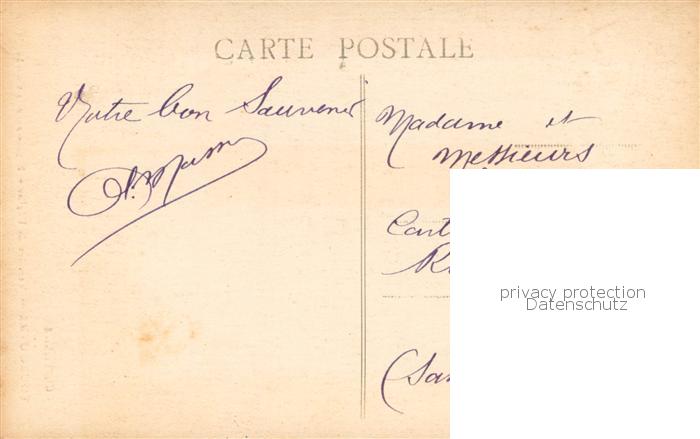 CARTE POSTALE
Notre bon Souvenir
Madame et
Messieurs
privacy protection
Datenschutz